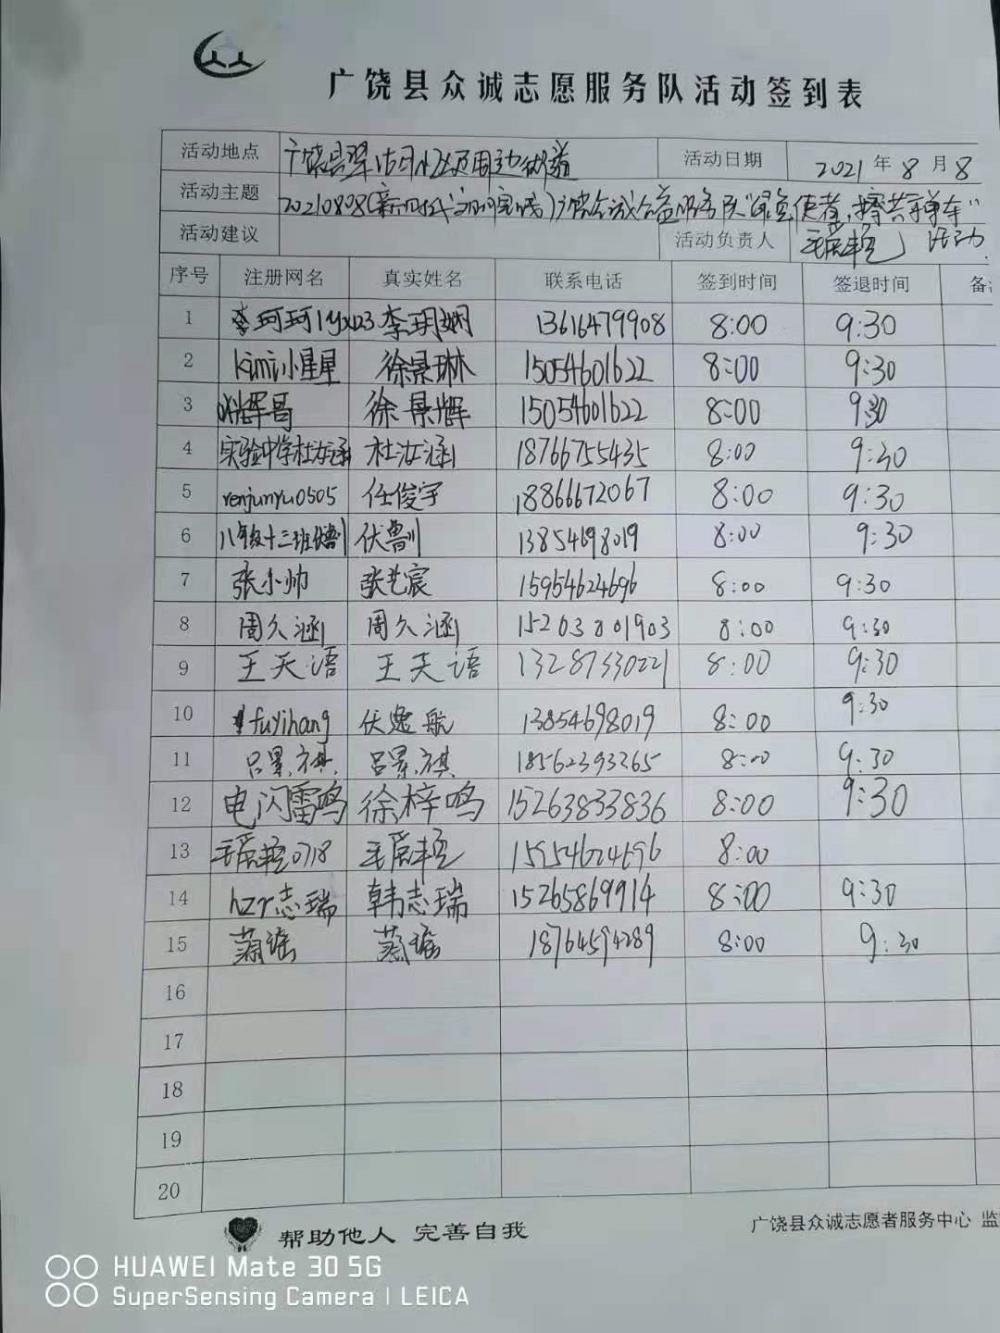 广饶县众诚志愿服务队活动签到表
活动地点 广饶县 小区及周边街道 活动日期 2021年8月8
活动主题 20210808(新时代文明实践)广饶众诚公益服务队"绿色使者,擦共享单车"
活动建议 活动负责人 活动
序号 注册网名 真实姓名 联系电话 签到时间 签退时间 备
1 李珂珂lyx123 李玥娴 13616479908 8:00 9:30
2 kimi小星星 徐景琳 15054601622 8:00 9:30
3 辉哥 徐景辉 15054601622 8:00 930
4 实验中学杜汝涵 杜汝涵 18766755435 8:00 9:30
5 renjunyu0505 任俊宇 18866672067 8:00 9:30
6 八年级十三班伏鲁川 伏鲁川 13854698019 8:00 9:30
7 张小帅 张艺宸 15954624696 8:00 9:30
8 周久涵 周久涵 15203801903 8:00 9:30
9 王天语 王天语 13287330221 8:00 9:30
10 fuyihang 伏逸航 13854698019 8:00 9:30
11 吕景祺 吕景祺 18562393265 8:00 9:30
12 电闪雷鸣 徐梓鸣 15263833836 8:00 9:30
13 0718 15954624696 8:00
14 hzr志瑞 韩志瑞 15265869914 8:00 9:30
15 瑶 瑶 18764594289 8:00 9:30
16
17
18
19
20
帮助他人 完善自我
广饶县众诚志愿者服务中心 监
HUAWEI Mate 30 5G
SuperSensing Camera | LEICA